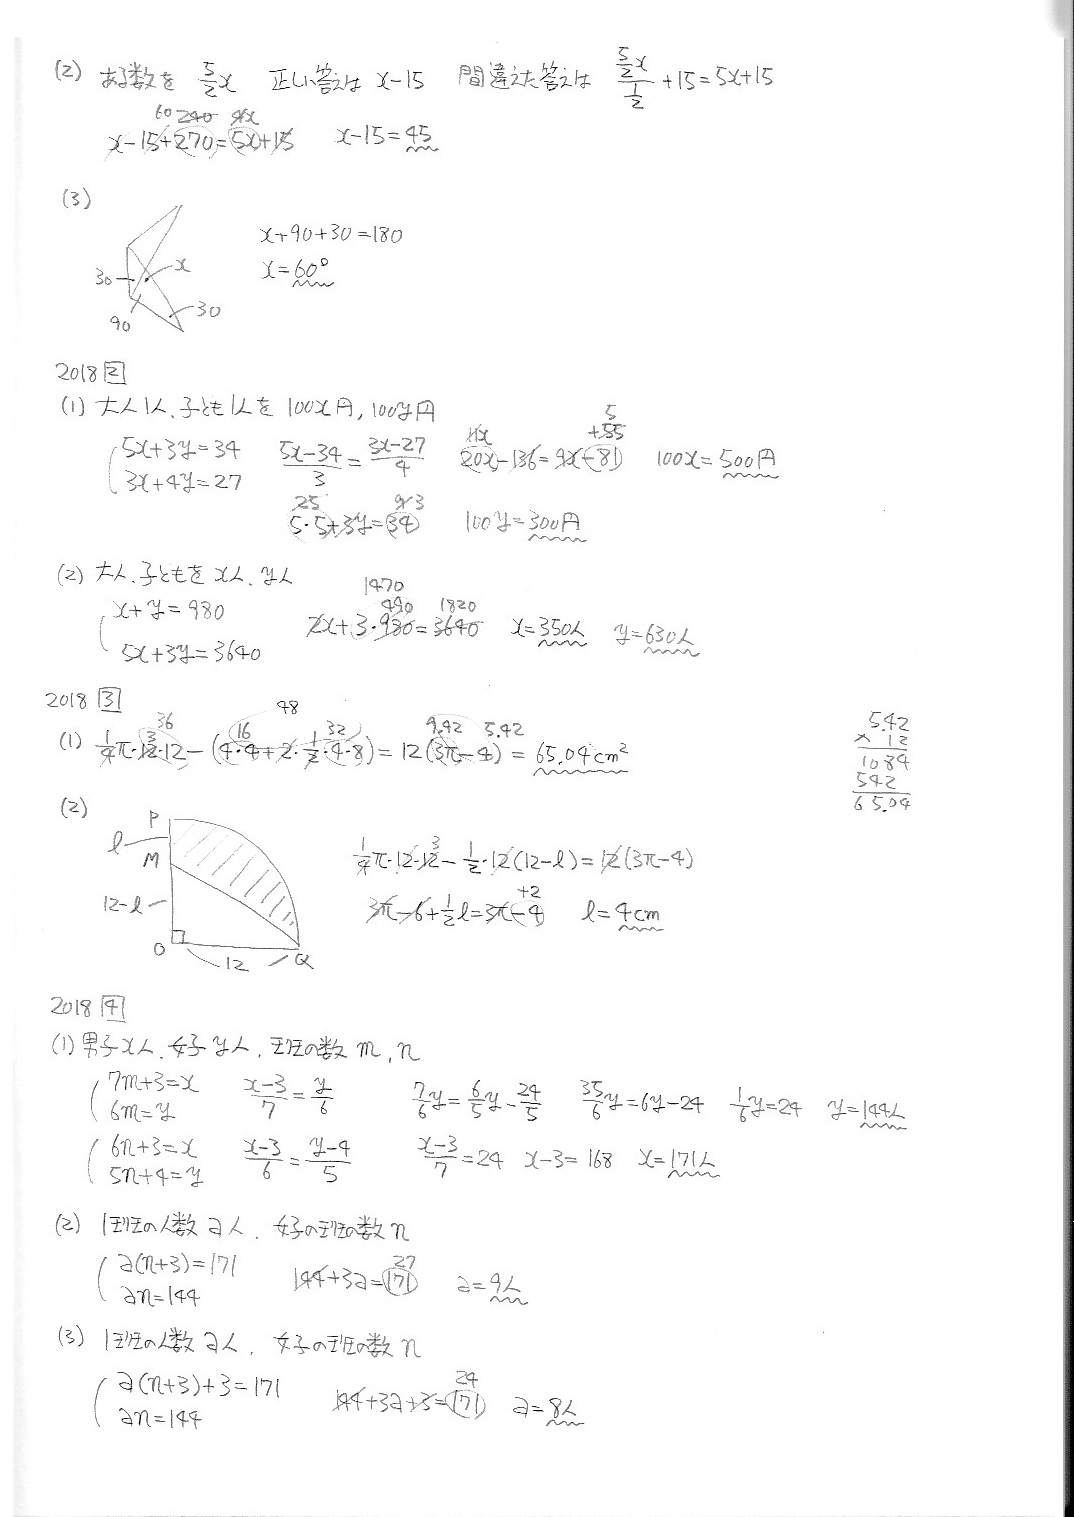 (2) ある数を 5/2x 正しい答えは x-15 間違えた答えは 5/2x / 1/2 +15=5x+15
60 240 4x
x-15+270=5x+15 x-15=45
(3)
x+90+30=180
x=60°
30 x
90 30
2018 2
(1) 大人1人、子ども1人を 100x円, 100y円
5x+3y=34 5x-34/3 = 3x-27/4 11x 20x-136=9x-81 5 +55 100x=500円
3x+4y=27
25 9 3
5・5+3y=34 100y=300円
(2) 大人、子どもを x人、y人
1470
x+y=980 490 1820
2x+3・980=3640 x=350人 y=630人
5x+3y=3640
2018 3
36 16 48 32 9.42 5.42
(1) 1/4π・12・12-(4・4+2・1/2・4・8)=12(3π-4)=65.04cm²
3
5.42
×12
1084
542
65.04
(2)
P
l
M
12-l
O 12 Q
1/4π・12・12-1/2・12(12-l)=12(3π-4)
3
+2
3π-6+1/2l=3π-4 l=4cm
2018 4
(1) 男子x人、女子y人、班の数 m, n
7m+3=x x-3/7=y/6 7/6y=6/5y-24/5 35/6y=6y-24 1/6y=24 y=144人
6m=y
6n+3=x x-3/6=y-4/5 x-3/7=24 x-3=168 x=171人
5n+4=y
(2) 1班の人数a人、女子の班の数n
a(n+3)=171 27
144+3a=171 a=9人
an=144
(3) 1班の人数a人、女子の班の数n
a(n+3)+3=171 24
144+3a+3=171 a=8人
an=144